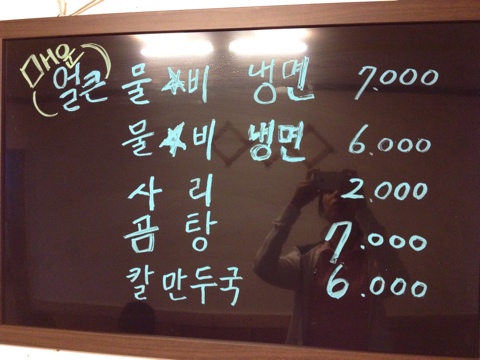 매운
얼큰 물★비 냉면 7.000
물★비 냉면 6.000
사리 2.000
곰탕 7.000
칼만두국 6.000